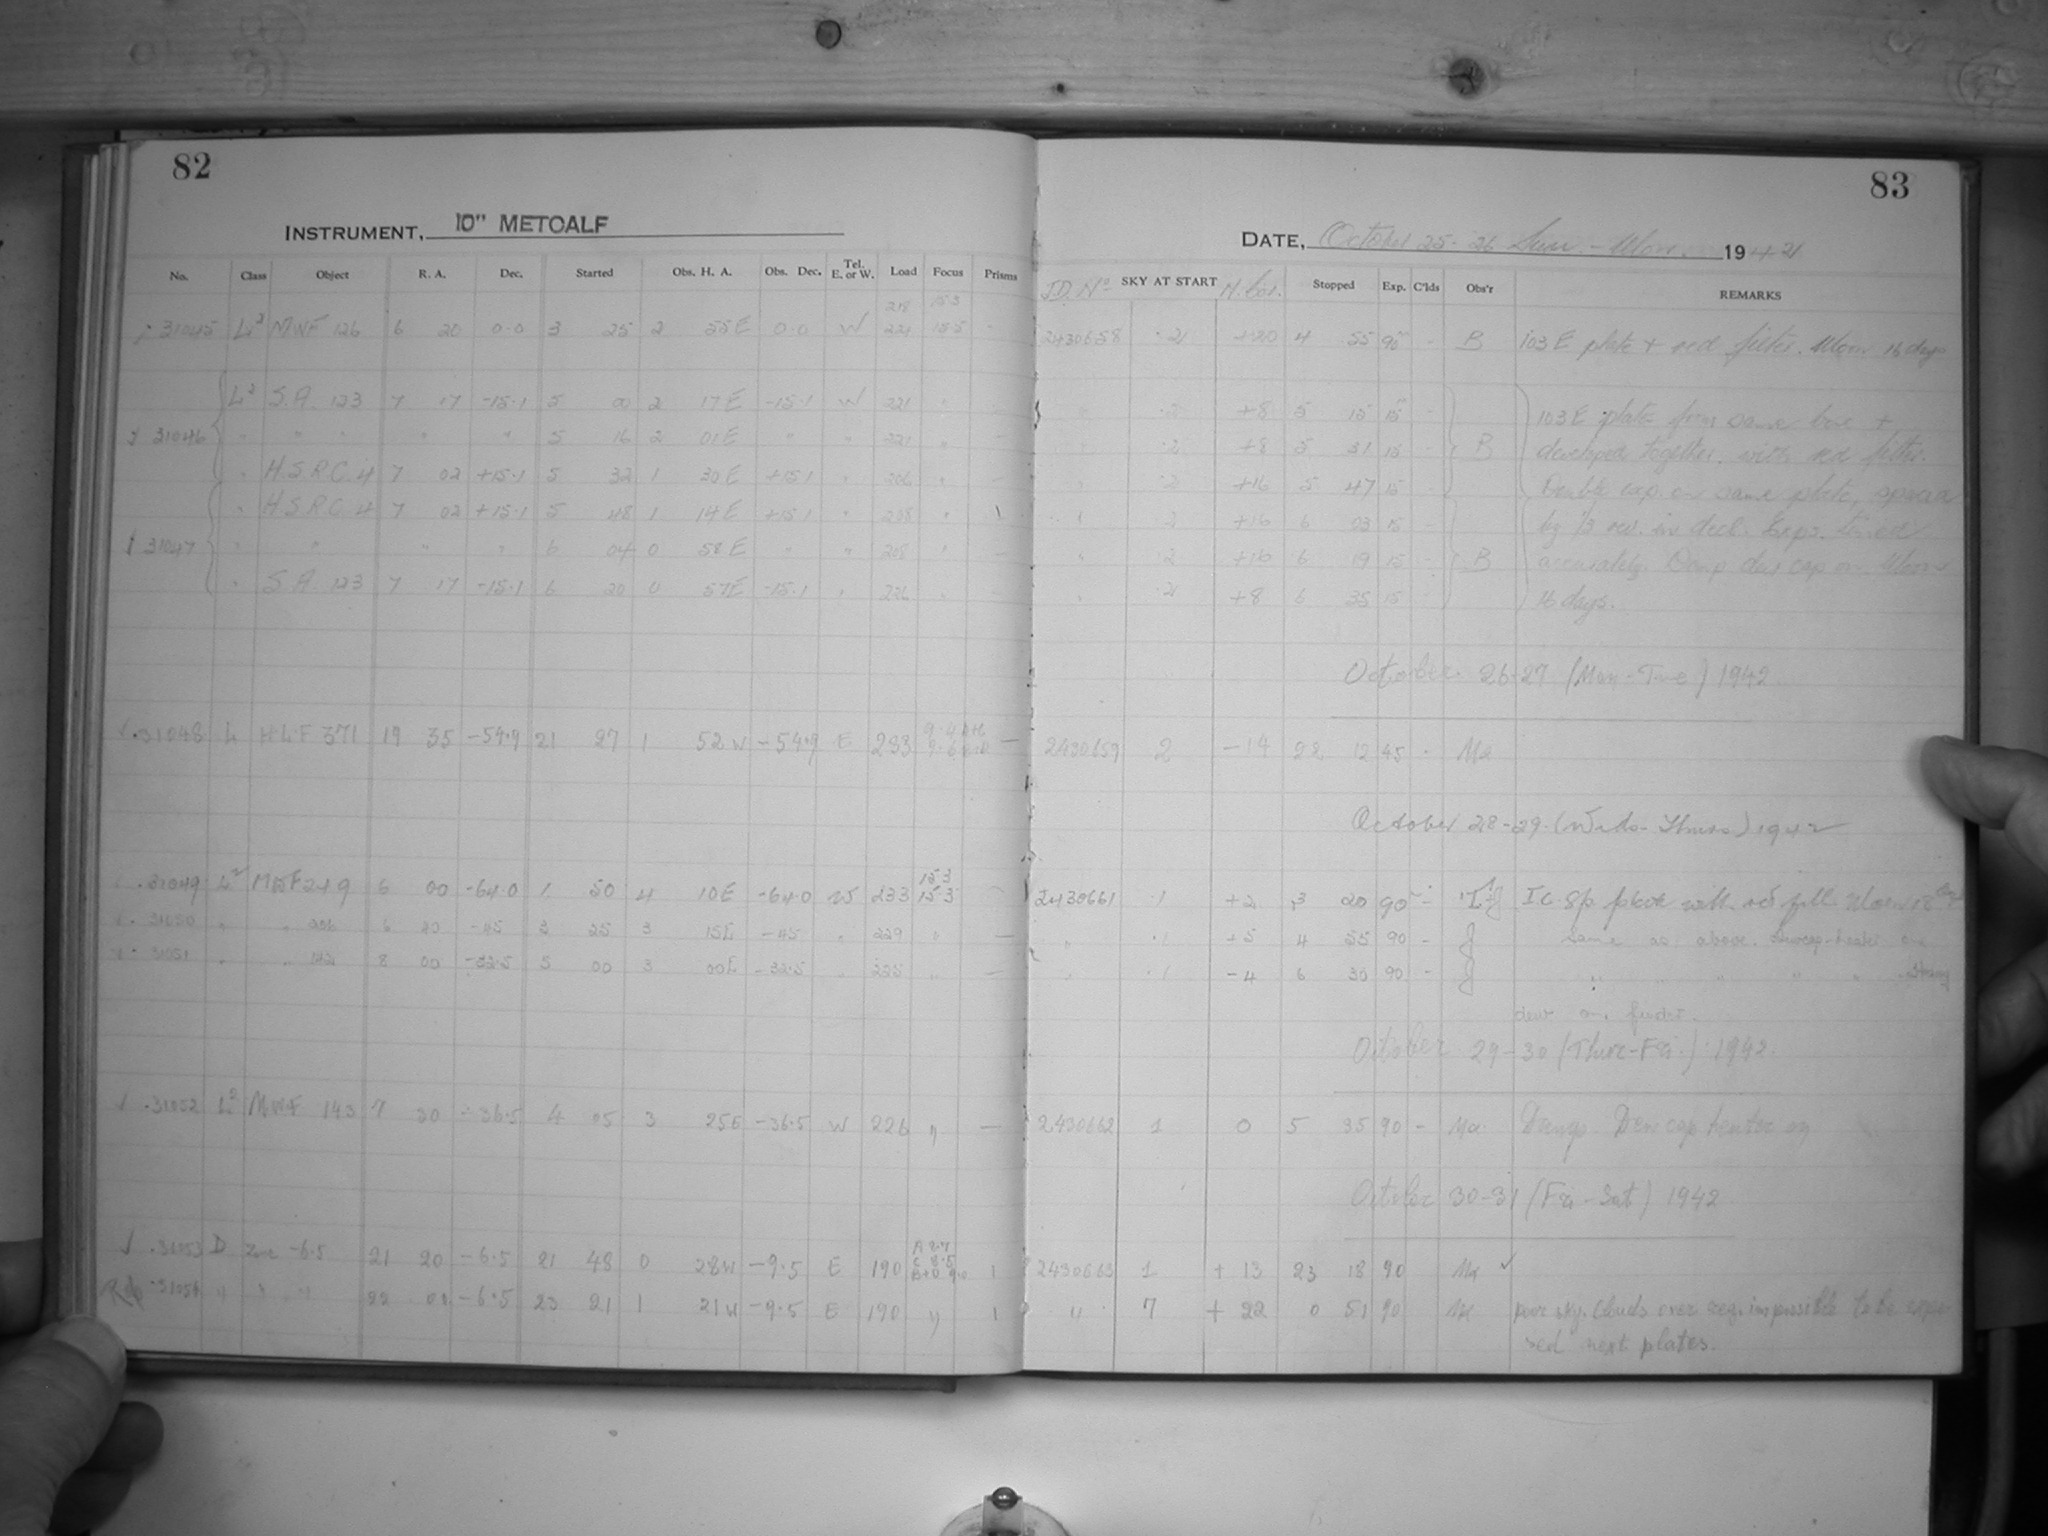 82
INSTRUMENT, 10" METCALF
No. Class Object R. A. Dec. Started Obs. H. A. Obs. Dec. Tel. E. or W. Load Focus Prisms
218 15.3
31045 L² MWF 126 6 20 0.0 3 25 2 55E 0.0 W 221 15.5 -
L² S.A. 123 7 17 -15.1 5 00 2 17E -15.1 W 221 "
31046 " " " " " 5 16 2 01E " " 221 "
" H.S.R.C. 4 7 02 +15.1 5 32 1 30E +15.1 " 206 " -
" H.S.R.C. 4 7 02 +15.1 5 48 1 14E +15.1 " 208 "
31047 " " " " 6 04 0 58E " " 208 " -
" S.A. 123 7 17 -15.1 6 20 0 57E -15.1 " 226 " -
31048 L HLF 371 19 35 -54.9 21 27 1 52W -54.9 E 233 -
31049 L² MWF 249 6 00 -64.0 1 50 4 10E -64.0 W 233 15.3 15.3 -
31050 " " 206 6 40 -45 3 25 3 15E -45 " 229 " -
31051 " " 8 00 -32.5 5 00 3 00E -32.5 " 225 " -
31052 L² MWF 143 7 30 -36.5 4 05 3 25E -36.5 W 226 " -
31053 D Zone -6.5 21 20 -6.5 21 48 0 28W -9.5 E 190 1
31054 " " " 22 -6.5 23 21 1 21W -9.5 E 190 " 1
83
DATE, October 25-26 Sun - Mon. 1942
J.D. No SKY AT START Stopped Exp. C'lds Obs'r REMARKS
2430658 .2 +20 4 55 90 - B 103E plate + red filter. Moon 16 days
" .2 +8 5 15 15 - 103E plate from same box +
" .2 +8 5 31 15 - B developed together. with red filter.
" .2 +16 5 47 15 - Double exp. on same plate,
" .2 +16 6 03 15 - by 1/3 rev. in decl. Exps. timed
" .2 +16 6 19 15 - B accurately. Damp dew cap on. Moon
" .2 +8 6 35 15 - 16 days.
October 26-27 (Mon-Tue) 1942
2430659 2 -14 22 12 45 - Ma
October 28-29 (Weds- Thurs) 1942
2430661 .1 +2 3 20 90 - plate with red filt. Moon 18
" .1 +5 4 55 90 - J same as above. Dewcap-heater on
" .1 -4 6 30 90 - J " " " " "
dew on
October 29-30 (Thurs-Fri.) 1942
2430662 1 0 5 35 90 - Ma Damp. Dew cap heater on
October 30-31 (Fri - Sat) 1942
2430663 1 + 13 23 18 90 Ma ✓
" 7 + 22 0 51 90 Ma poor sky. Clouds over reg. impossible to be expo
sed next plates.